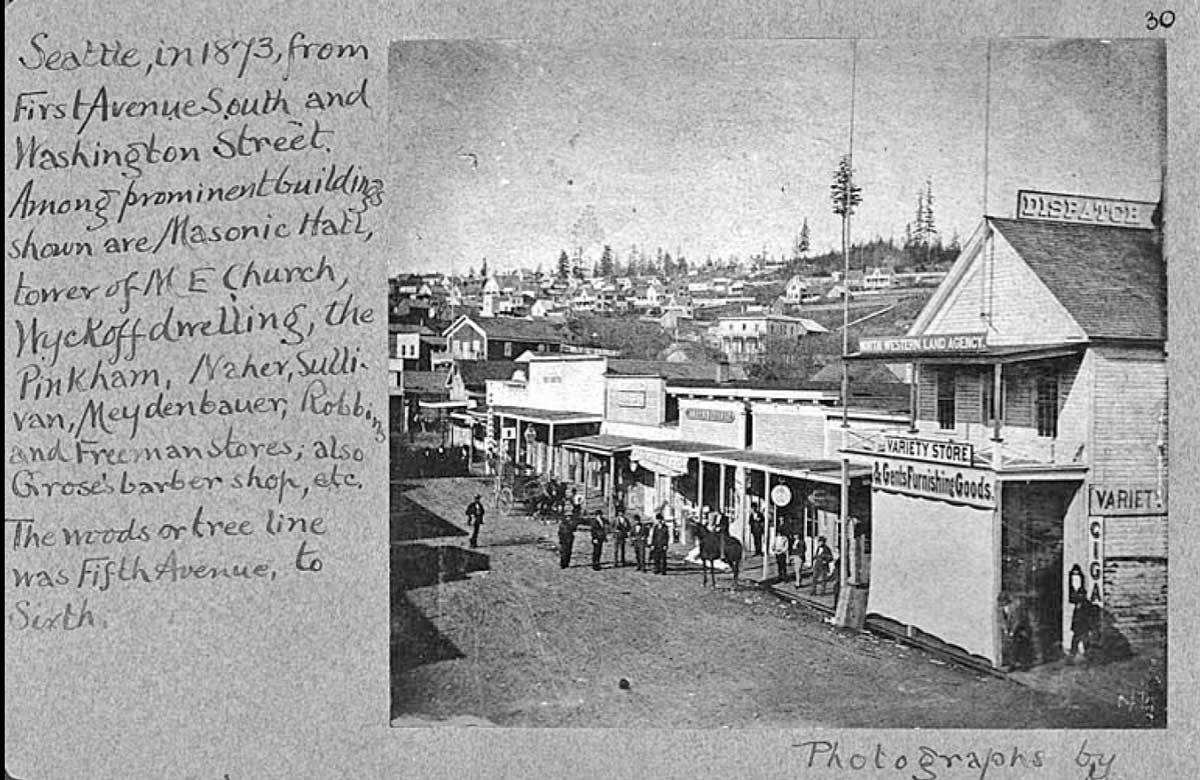 30
Seattle, in 1873, from
First Avenue South and
Washington Street.
Among prominent buildings
shown are Masonic Hall,
tower of M E Church,
Wyckoff dwelling, the
Pinkham, Naher, Sulli-
van, Meydenbauer, Robbins
and Freeman stores; also
Grose's barber shop, etc.
The woods or tree line
was Fifth Avenue, to
Sixth.
DISPATCH
NORTH WESTERN LAND AGENCY.
VARIETY STORE
& Gents Furnishing Goods.
VARIET
CIGA
Photographs by